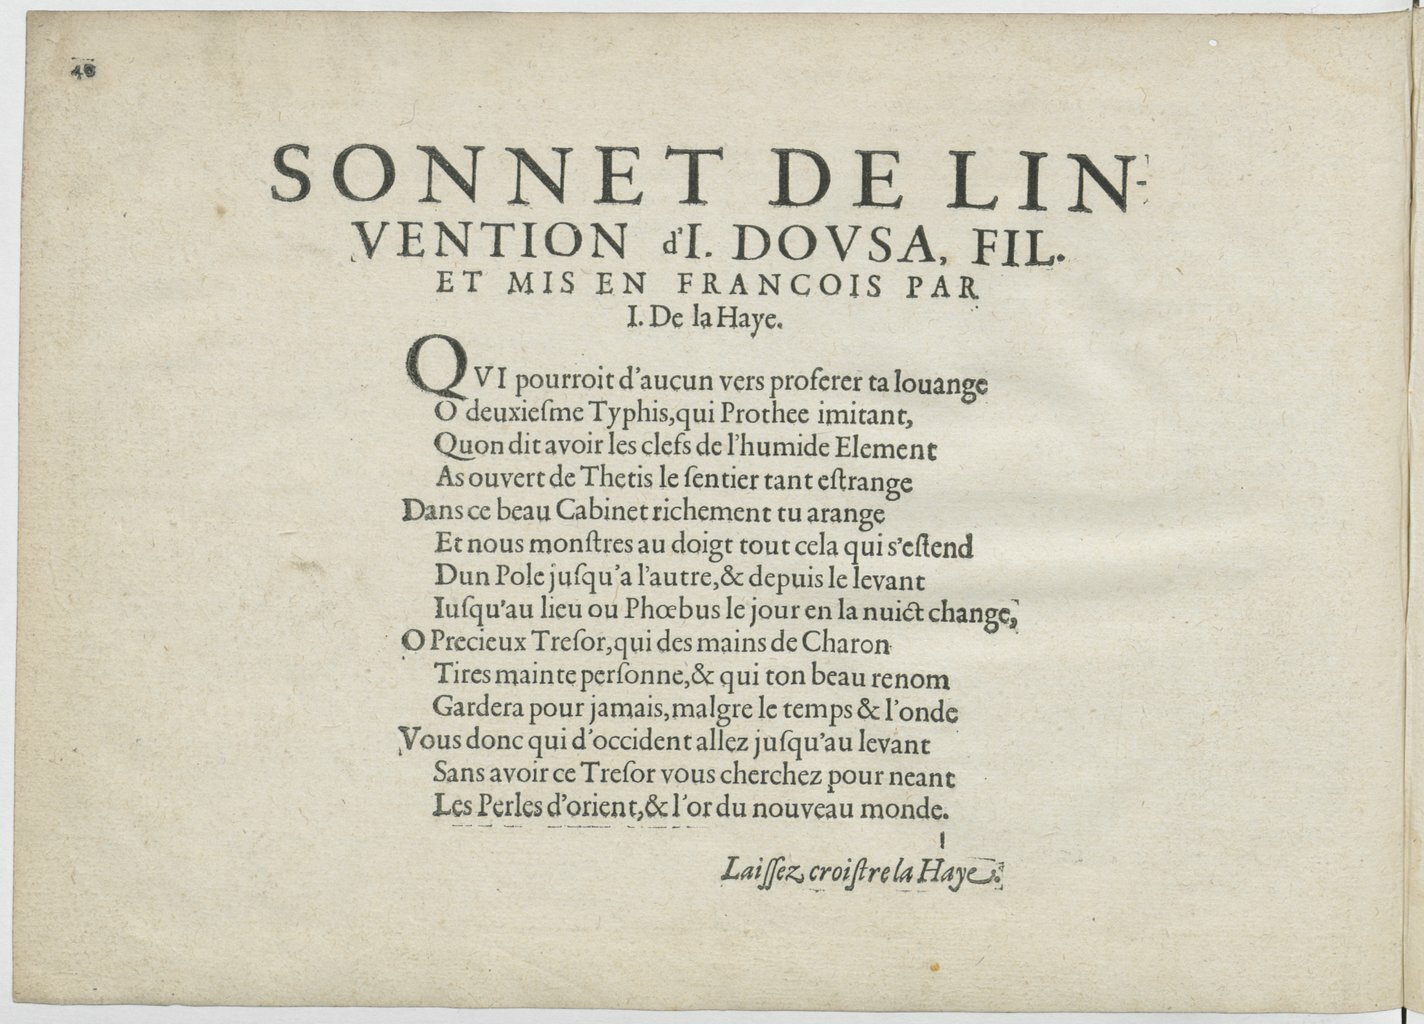 SONNET DE LIN-
VENTION d'I. DOVSA, FIL.
ET MIS EN FRANCOIS PAR
I. De la Haye.
QVI pourroit d'aucun vers proferer ta louange
O deuxieſme Typhis, qui Prothee imitant,
Quon dit avoir les clefs de l'humide Element
As ouvert de Thetis le ſentier tant eſtrange
Dans ce beau Cabinet richement tu arange
Et nous monſtres au doigt tout cela qui s'eſtend
Dun Pole juſqu'a l'autre, & depuis le levant
Iuſqu'au lieu ou Phœbus le jour en la nuict change,
O Precieux Treſor, qui des mains de Charon
Tires mainte perſonne, & qui ton beau renom
Gardera pour jamais, malgre le temps & l'onde
Vous donc qui d'occident allez juſqu'au levant
Sans avoir ce Treſor vous cherchez pour neant
Les Perles d'orient, & l'or du nouveau monde.
Laiſſez croiſtre la Haye.